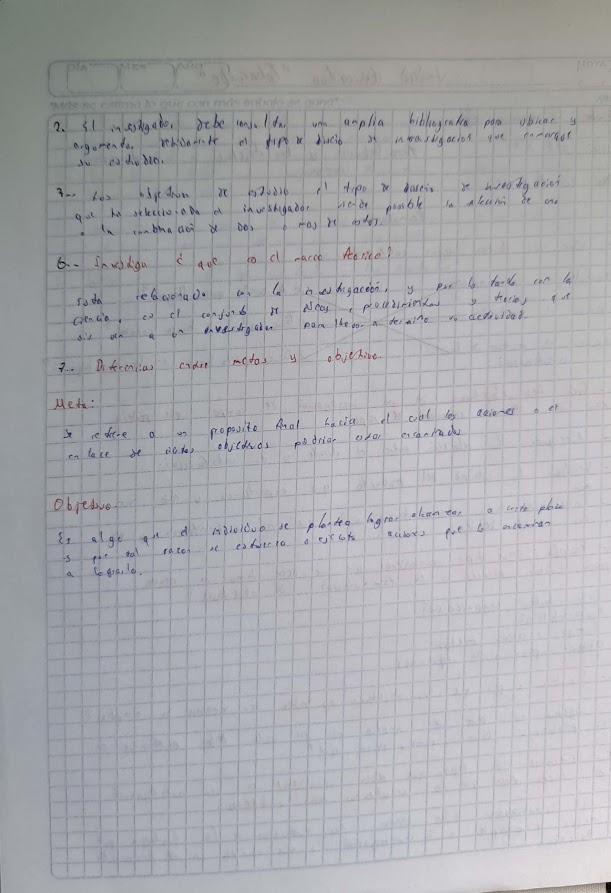 2. El investigador debe consultar una amplia bibliografia para ubicar y
argumentar debidamente el tipo de diseño de investigacion que enmarque
su estudio.
3.- Los objetivos de estudio el tipo de diseño de investigacion
que ha seleccionado el investigador siendo posible la eleccion de uno
o la combinacion de dos o mas de estos.
6.- Investiga ¿ que es el marco teorico?
esta relacionado con la investigacion, y por lo tanto con la
ciencia, es el conjunto de ideas, procedimientos y teorias que
a un investigador para llevar a termino su actividad.
7.- Diferencias entre metas y objetivo.
Meta:
Se refiere a un proposito final hacia el cual las acciones o el
enlace de ciertos objetivos podrian estar encaminados
Objetivo.
Es algo que el individuo se plantea lograr alcanzar a corto plazo
y por tal razon se esfuerza o ejecuta acciones que lo encaminan
a lograrlo.